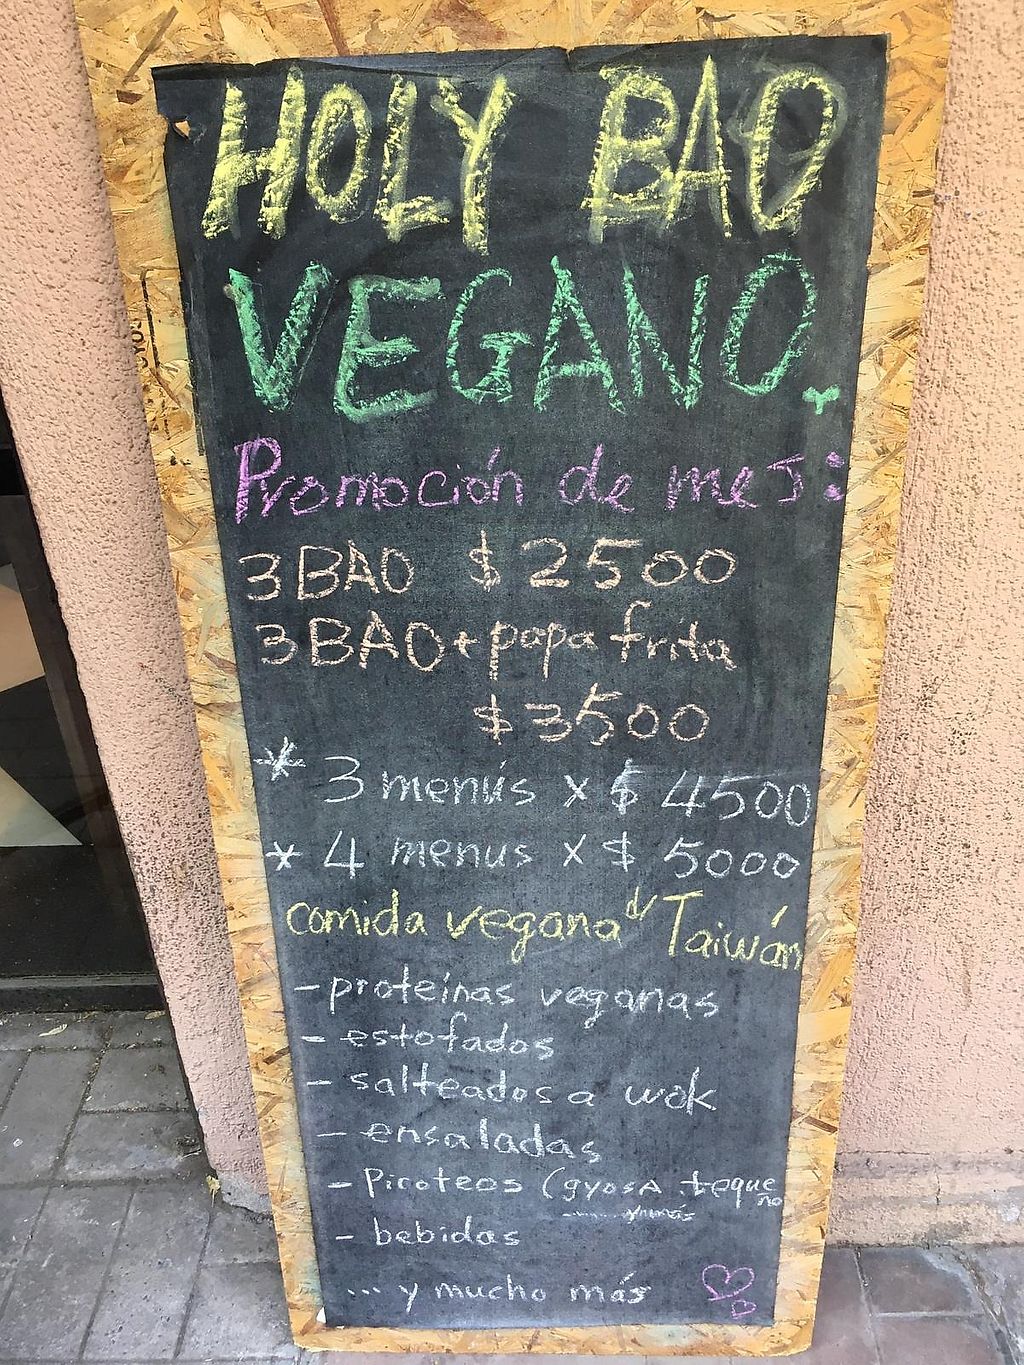 HOLY BAO
VEGANO.
Promoción de mes:
3 BAO $2500
3 BAO + papa frita
$3500
* 3 menús x $ 4500
* 4 menus x $ 5000
comida vegana d/ Taiwán
- proteínas veganas
- estofados
- salteados a wok
- ensaladas
- Picoteos (gyosA. teque
ño
..... y más
- bebidas
... y mucho más